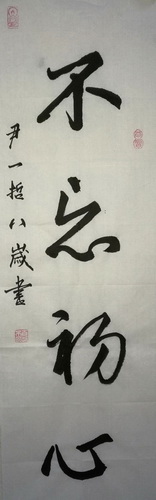 不忘初心
尹一哲八歲書